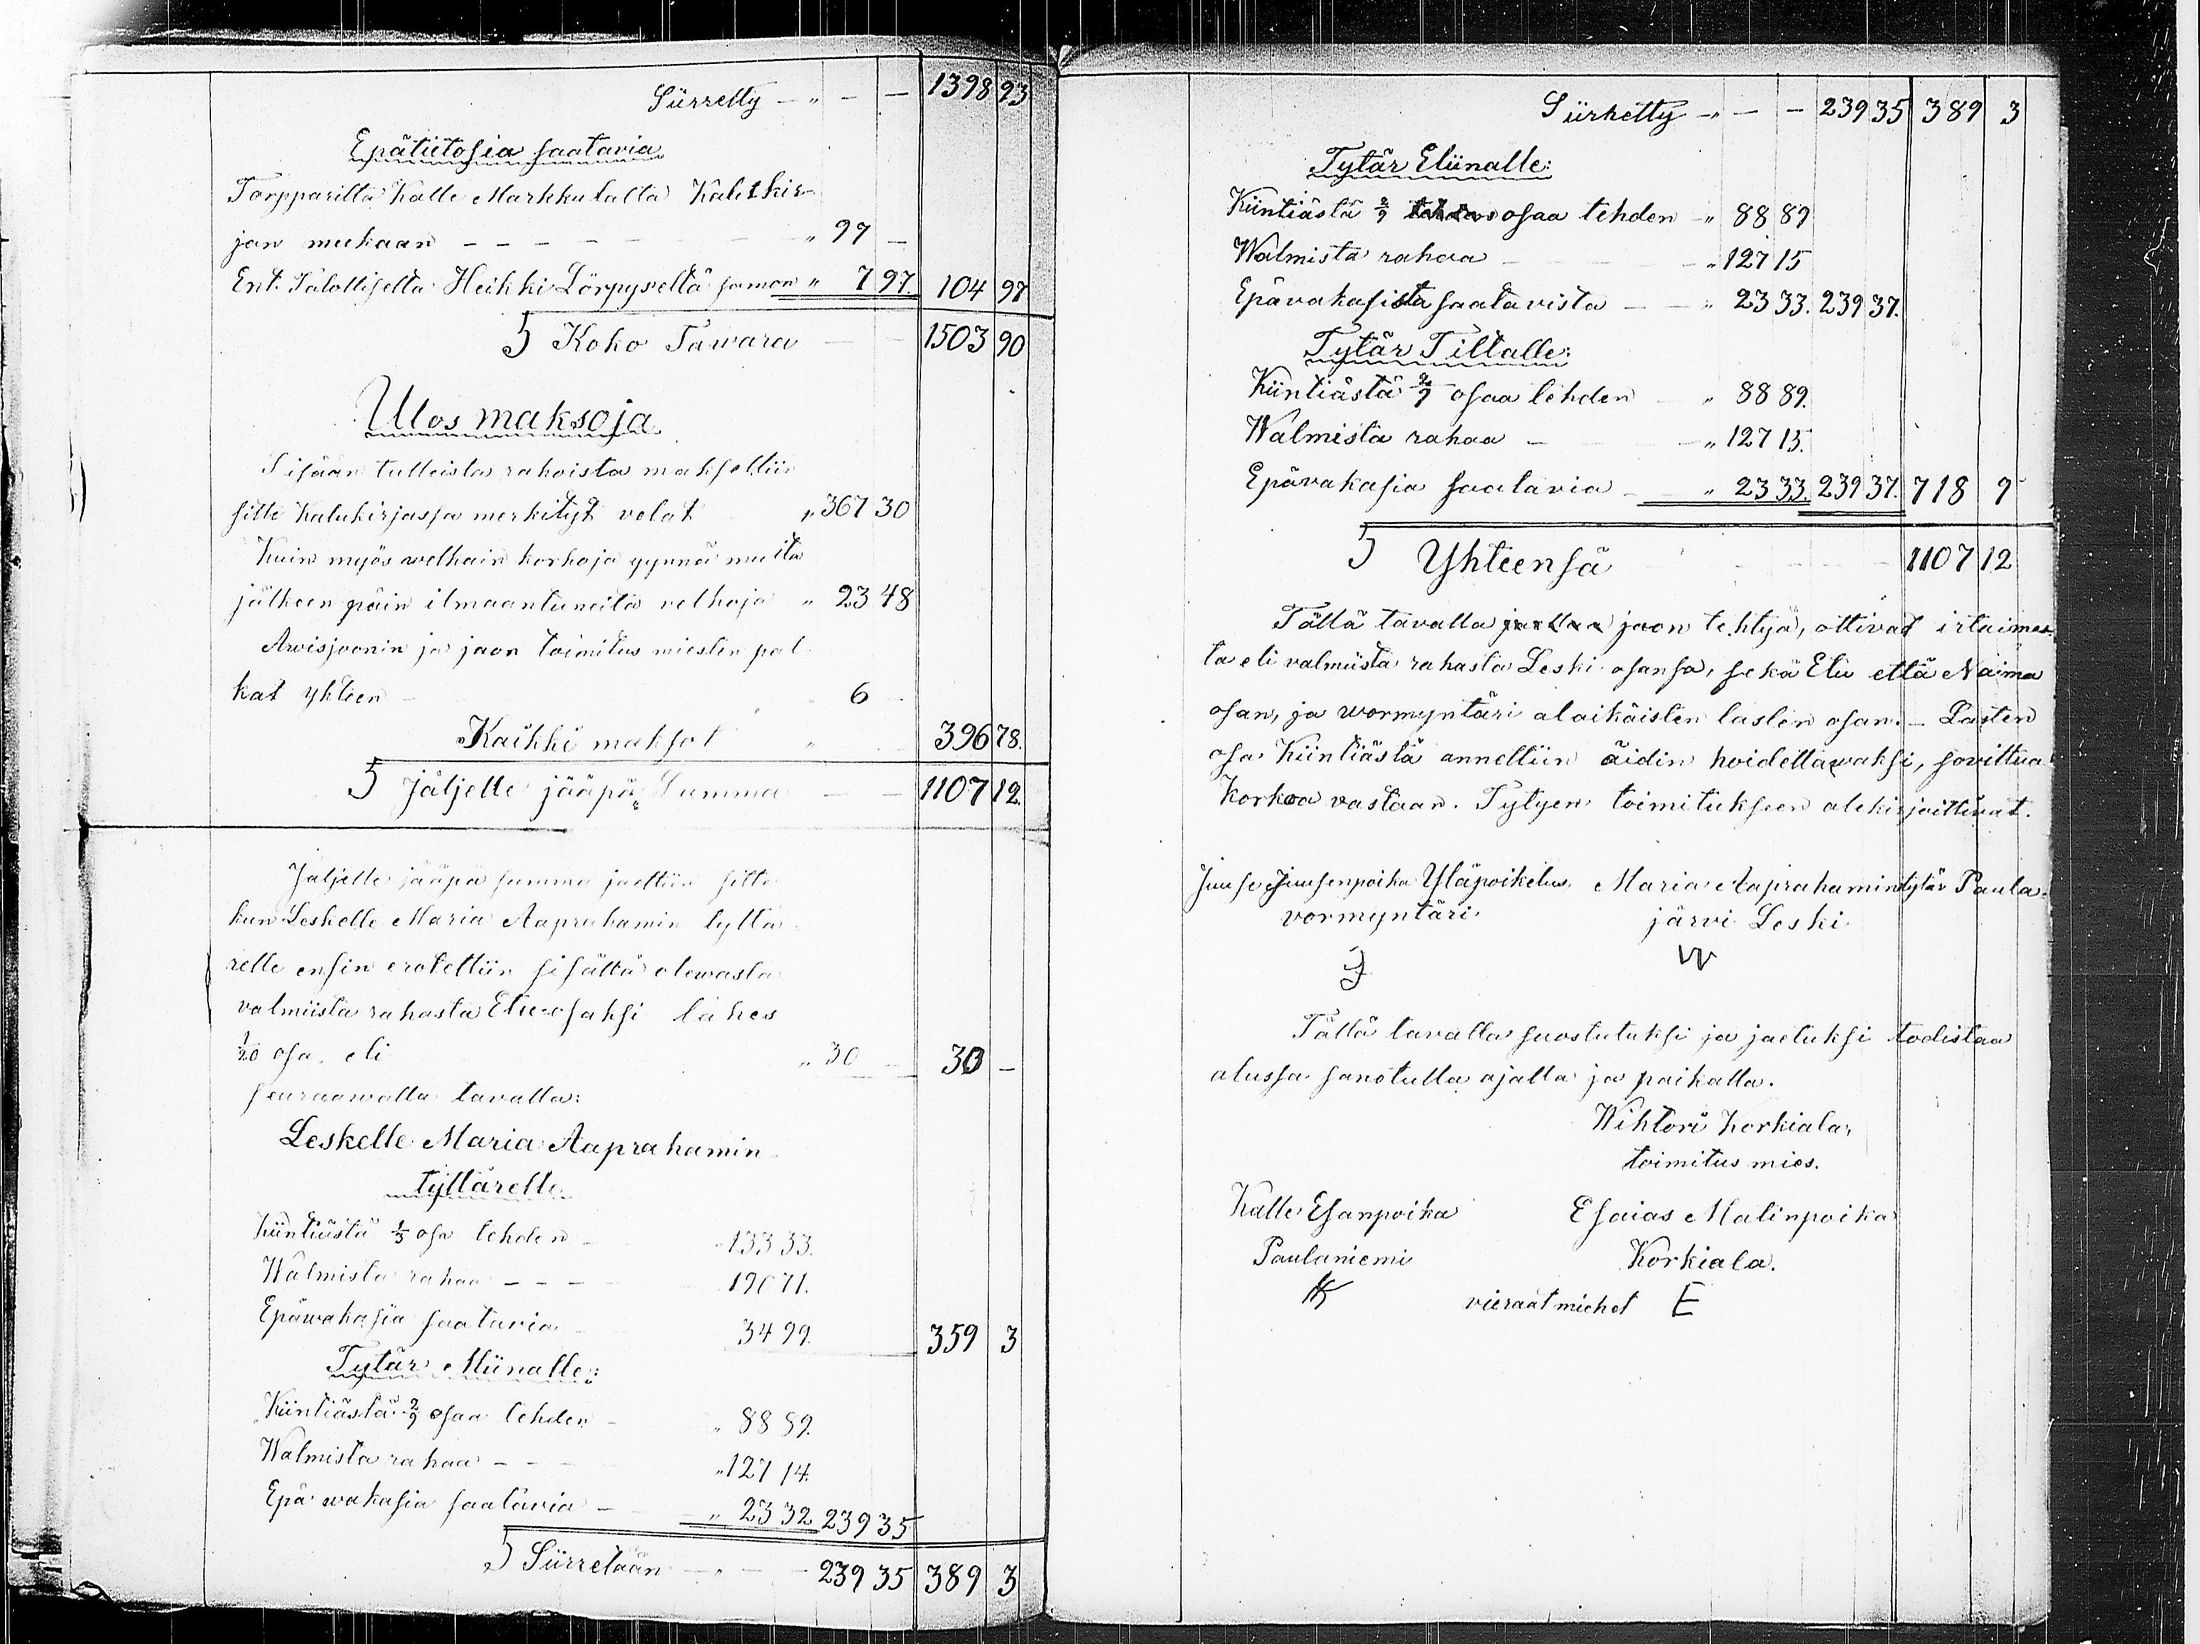 Siirretty - " - - 1398 93
Epätietosia saatavia
Torpparilta Kalle Markkulalta Kalukir-
jan mukaan - - - - - - " 97 -
Ent. Talolliselta Heikki Lörpyseltä saman " 7 97. 104 97
S Koko Tavara - - 1503 90
Ulos maksoja.
Sisään tulleista rahoista maksettiin
sitte Kalukirjassa merkityt velat " 367 30
Kuin myös velkain korkoja ynnä muita
jälkeen päin ilmaantuneita velkoja " 23 48
Arvisjoonin ja jaon toimitus miesten pal-
kat yhteen - " 6 -
Kaikki maksot " 396 78.
S Jäljelle jääpä Summa - - 1107 12.
Jäljelle jääpä summa jaettiin sitte
kun Leskelle Maria Aaprahamin tyttä-
relle ensin erotettiin sisältä olewasta
valmiista rahasta Etu-osaksi lähes
1/20 osa, eli " 30 - 30 -
seuraawalla tavalla:
Leskelle Maria Aaprahamin
tyttärelle
Kiintiästä 1/3 osa tehden - " 133 33.
Walmista rahaa - - - 190 71.
Epävakasia saatavia 34 99. 359 3
Tytär Miinalle:
Kiintiästä 2/9 osaa tehden - " 88 89.
Walmista rahaa - - - " 127 14.
Epä vakasia saatavia - " 23 32 239 35
S Siirretään - " - - 239 35 389 3
Siirretty - " - - 239 35 389 3
Tytär Eliinalle:
Kiintiästä 2/9 osaa tehden - " 88 89
Walmista rahaa - - " 127 15
Epävakasista saatavista - - " 23 33. 239 37.
Tytär Tiltalle:
Kiintiästä 2/9 osaa tehden - " 88 89.
Walmista rahaa - - " 127 15.
Epävakasia saatavia - " 23 33. 239 37. 718 9
S Yhteensä - - - 1107 12
Tällä tavalla jaon tehtyä, ottivat irtaimes-
ta eli valmiista rahasta Leski osansa, sekä Etu että Naima
osan, ja wormyntäri alaikäisten lasten osan. - Lasten
osa Kiintiästä annettiin äidin hoidettavaksi, sovittua
Korkoa vastaan. Tytyen toimitukseen alekirjoittivat.
Juuse Juusenpoika Yläpoikelus. Maria Aaprahamintytär Paula-
vormyntäri järvi Leski
J W
Tällä tavalla suostutuksi ja jaetuksi todistaa
alussa sanotulla ajalla ja paikalla.
Wihtori Korkiala,
toimitus mies.
Kalle Esanpoika Esaias Matinpoika
Paulaniemi Korkiala.
K vieraat miehet E